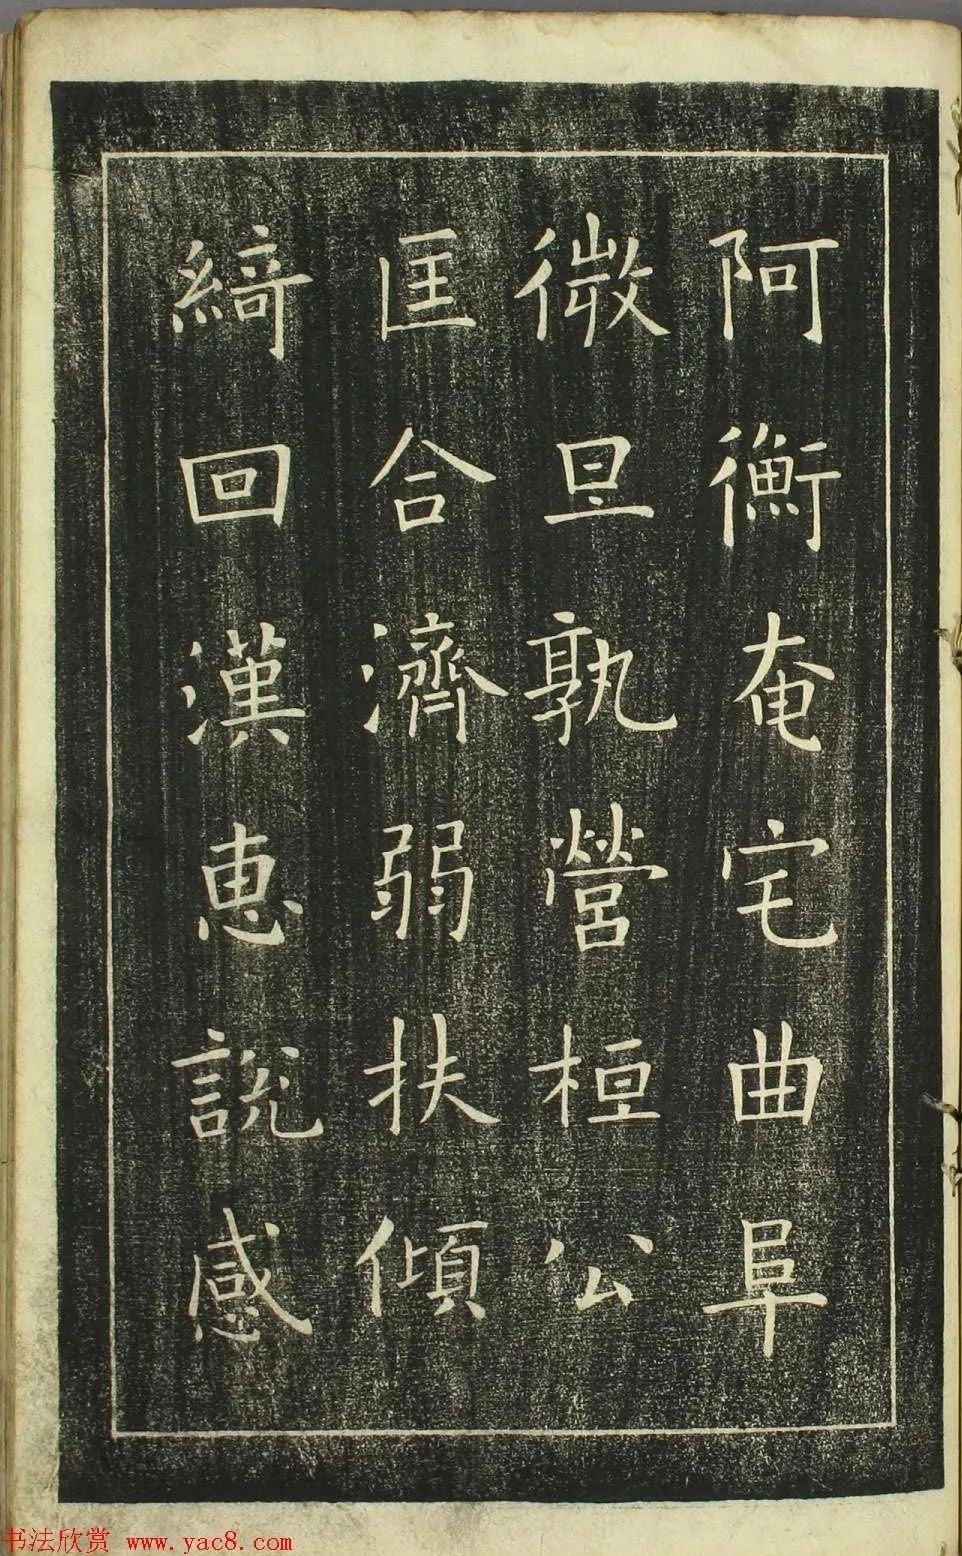 阿衡奄宅曲阜
微旦孰營桓公
匡合濟弱扶傾
綺回漢惠說感
书法欣赏 www.yac8.com